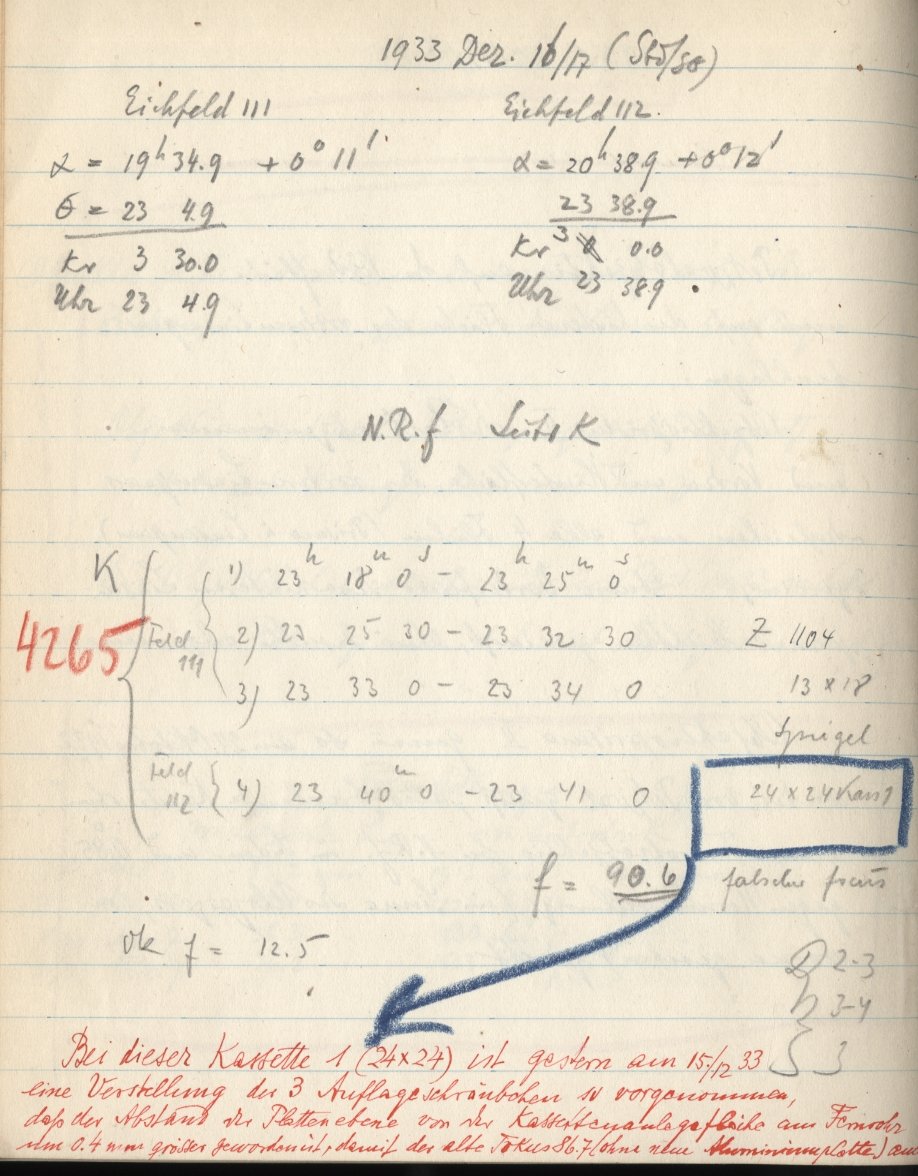 1933 Dez. 16/17 (Sto/so)
Eichfeld 111
α = 19h 34.9 + 0° 11'
θ = 23 4.9
Kr 3 30.0
Uhr 23 4.9
Eichfeld 112.
α = 20h 38.9 + 0° 12'
23 38.9
Kr 3 0.0
Uhr 23 38.9
N.R.f K
K
4265
Feld 111
1) 23h 18m 0s - 23h 25m 0s
2) 23 25 30 - 23 32 30
3) 23 33 0 - 23 34 0
Feld 112
4) 23 40m 0 - 23 41 0
Z 1104
13 x 18
Spiegel
24 x 24 Kass 1
f = 90.6 falscher focus
ok f = 12.5
2-3
3-4
3
Bei dieser Kassette 1 (24x24) ist gestern am 15./12 33
eine Verstellung der 3 Auflageschräubchen so vorgenommen,
daß der Abstand der Plattenebene von der Kassettenanlagefläche am Fernrohr
um 0.4 mm größer geworden ist, damit der alte Fokus 86.7 (ohne neue Aluminiumplatte) am